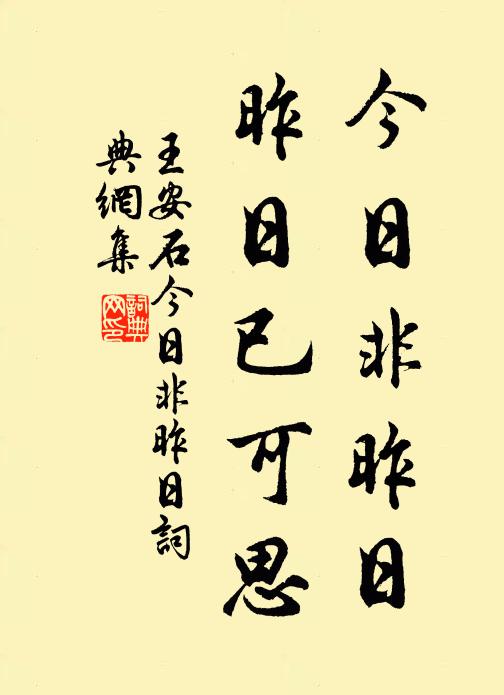 今日非昨日
昨日已可思
王安石今日非昨日詞
典網集
詞典
网印